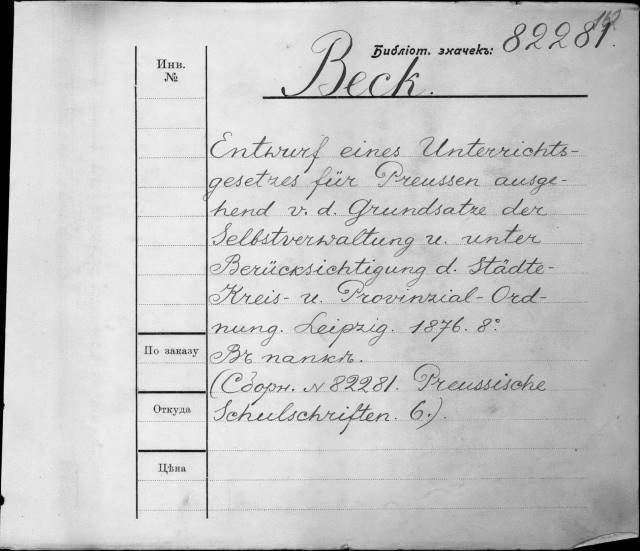 152
Библіот. значекъ: 82281.
Инв.
№
Beck.
Entwurf eines Unterrichts-
gesetzes für Preussen ausge-
hend v. d. Grundsatze der
Selbstverwaltung u. unter
Berücksichtigung d. Städte-
Kreis- u. Provinzial-Ord-
nung. Leipzig. 1876. 8°.
По заказу
Въ папкѣ.
(Сборн. № 82281. Preussische
Откуда
Schulschriften. 6.).
Цѣна